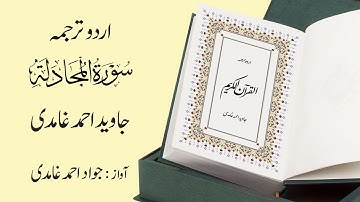 اردو ترجمہ
سُوْرَةُ الْمُجَادَلَة
جاوید احمد غامدی
آواز : جواد احمد غامدی
اردو ترجمہ
القرآن الکریم
جاوید احمد غامدی